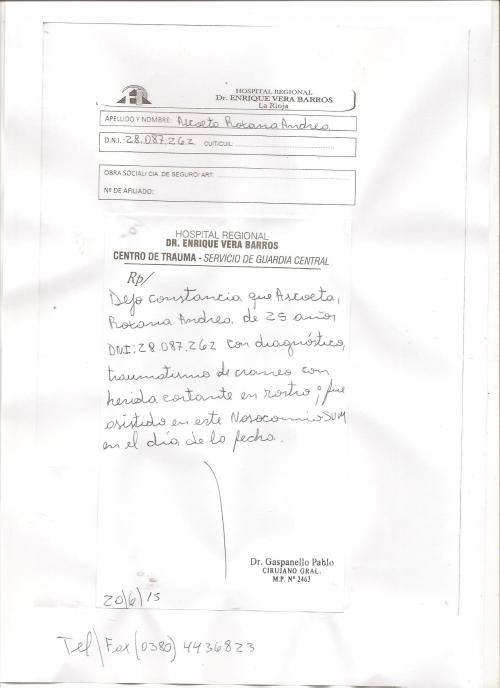 HOSPITAL REGIONAL
Dr. ENRIQUE VERA BARROS
La Rioja
APELLIDO Y NOMBRE: Ascoeta Roxana Andrea
D.N.I.: 28.087.262 CUIT/CUIL:
OBRA SOCIAL/ CIA. DE SEGURO/ ART:
Nº DE AFILIADO:
HOSPITAL REGIONAL
DR. ENRIQUE VERA BARROS
CENTRO DE TRAUMA - SERVICIO DE GUARDIA CENTRAL
Rp/
Dejo constancia que Ascoeta,
Roxana Andrea, de 25 años
DNI: 28.087.262 con diagnóstico,
traumatismo de craneo con
herida cortante en rostro; fue
asistido en este Nosocomio SUM
en el día de la fecha.
Dr. Gaspanello Pablo
CIRUJANO GRAL.
M.P. Nº 2463
20/6/15
Tel\Fax (0380) 4436823